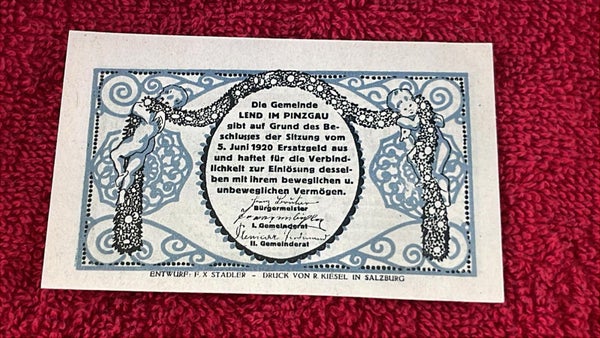 Die Gemeinde
LEND IM PINZGAU
gibt auf Grund des Be-
schlusses der Sitzung vom
5. Juni 1920 Ersatzgeld aus
und haftet für die Verbind-
lichkeit zur Einlösung dessel-
ben mit ihrem beweglichen u.
unbeweglichen Vermögen.
Bürgermeister
I. Gemeinderat
II. Gemeinderat
ENTWURF: F. X STADLER - DRUCK VON R KIESEL IN SALZBURG